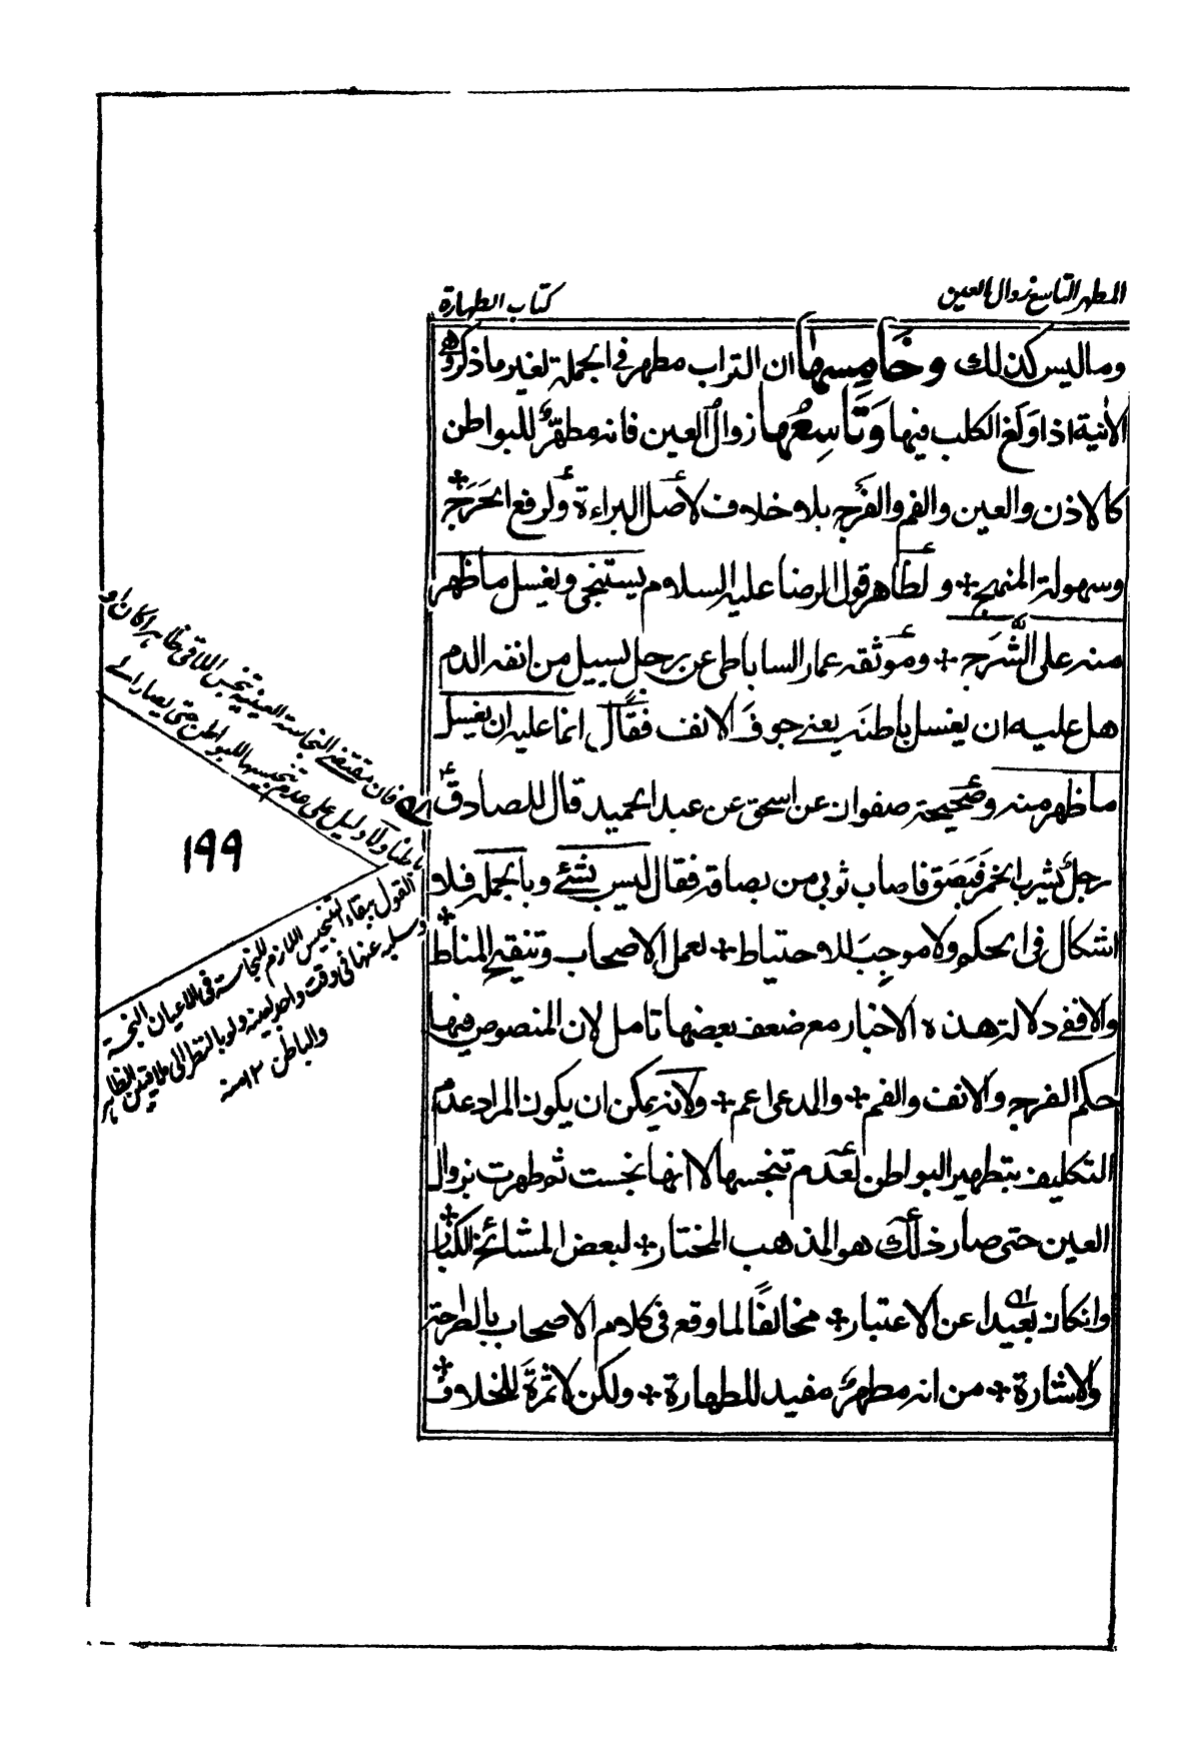 المطهر التاسع زوال العين
كتاب الطهارة
وما ليس كذلك وخَامِسها ان التراب مطهر في الجملة لغير ما ذكروه
الانية اذا وَلَغ الكلب فيها وَتَاسِعُها زوال العين فانه مطهّر للبواطن
كالاذن والعين والفم والفَرج بلا خلاف لأصل البراءة ولرفع الحَرَج
وسهولة المنهج + ولظاهر قول الرضا عليه السلام يستنجي ويغسل ما ظهر
منه على الشَّرَج + وموثقه عمار الساباطى عن رجل يسيل من انفه الدم
هل عليه ان يغسل باطنَه يعنے جوفَ الانف فقَال انما عليه ان يغسل
ما ظهر منه وصحيحة صفوان عن اسحق عن عبد الحميد قال للصادقؑ
رجل يشرب الخمر فَبَصَق فاصاب ثوبي من بصاقه فقال ليس بشئے وبالجملة فلا
اشكال فى الحكم ولا موجِبَ للاحتياط + لعمل الاصحاب وتنقيح المناط +
والا ففے دلالة هذه الاخبار مع ضعف بعضها تامل لان المنصوص فيها
حكم الفرج والانف والفم + والمدعى اعم + ولانه يمكن ان يكون المراد عدم
التكليف بتطهير البواطن لعَدَم تنجسها لا انها نجست ثم طهرت بزوال
العين حتى صار ذلك هو المذهب المختار + لبعض المشائخ الكبار +
وانكان بعيدا عن الاعتبار + مخالفًا لما وقع فى كلام الاصحاب بالصراحة
والاشارة + من انه مطهر مفيد للطهارة + ولكن لا ثمرةَ للخلاف +
فان مقتضے النجاسة العينية تنجس الملاقى ظاهرا كان او
باطنا ولا دليل على عدم تنجيسها للبواطن حتى يصار الے
١٩٩
القول ببقاء التنجيس اللازم للنجاسة فى الاعيان النجسة
وسلبه عنها فى وقت واحد بعينه ولو بالنظر الى ملاقيتى الظاهر
والباطن ١٢ منه